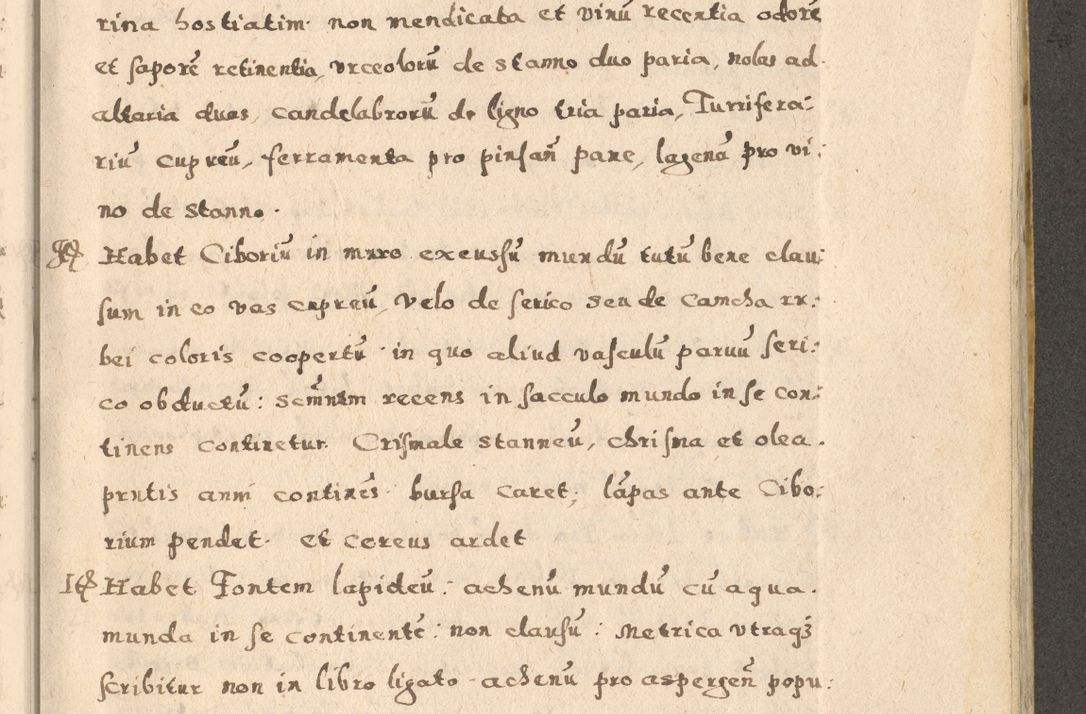 rina hostiatim non mendicata et vinū recentia odorē
et saporē retinentia, vrceolorū de stanno duo paria, nolas ad
altaria duas, candelabrorū de ligno tria paria, Turrifera:
riū cupreū, ferramenta pro pinsan̄ pane, lagenā pro vi:
no de stanno.
Habet Ciboriū in muro excussū mundū tutū bene clau:
sum in eo vas cupreū, velo de serico seu de Camcha ru:
bei coloris coopertū in quo aliud vasculū paruū seri:
co obductū: Scm̄ntm recens in sacculo mundo in se con:
tinens continetur. Crismale stanneū, chrisma et olea.
prntis anni continēs bursa caret; lāpas ante Cibo:
rium pendet. et cereus ardet
Itē Habet Fontem lapideū: achenū mundū cū aqua.
munda in se continentē: non clausū: Metrica vtraqȝ
scribitur non in libro ligato. achenū pro aspergen̄ popu: